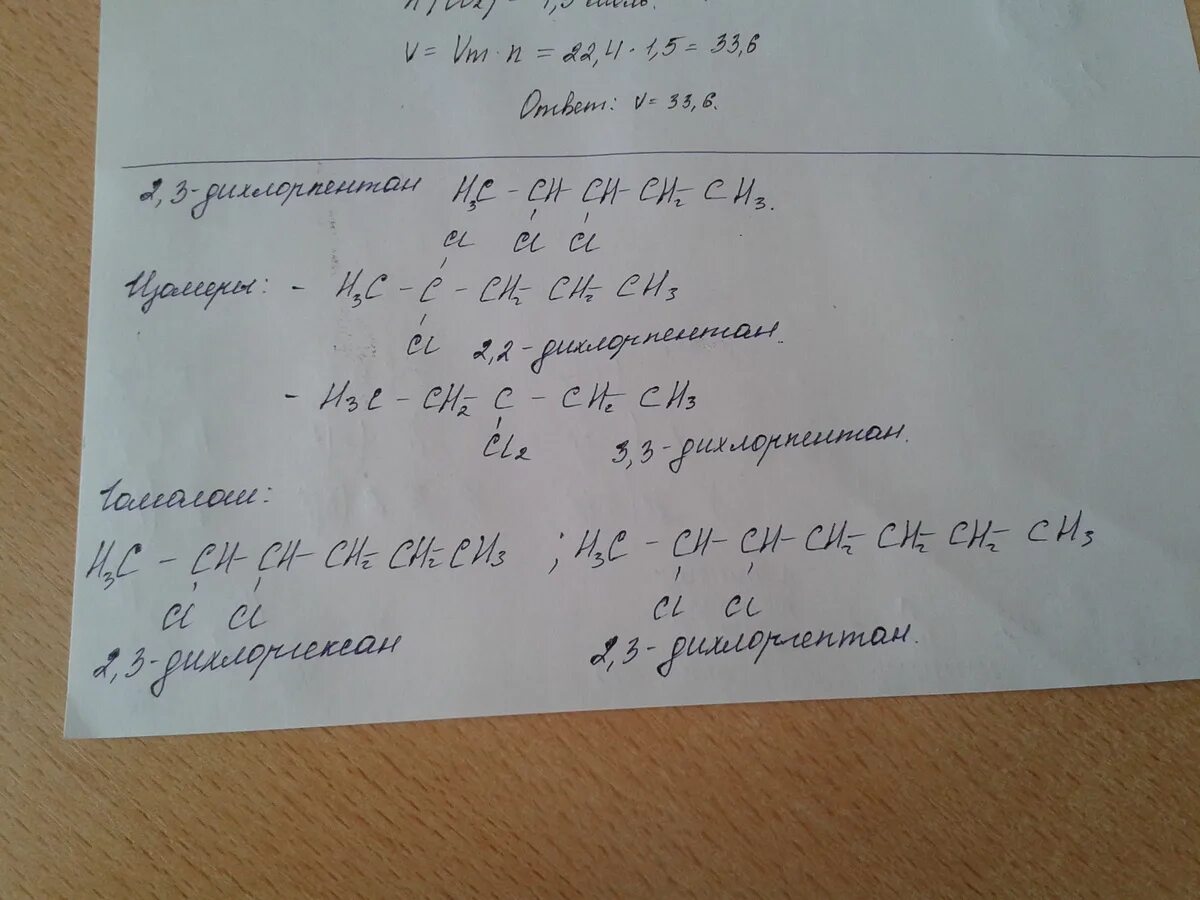 = 1,5 моль.
V = Vm · n = 22,4 · 1,5 = 33,6
Ответ: V = 33,6.
2,3-дихлорпентан H₃C - CH - CH - CH₂ - CH₃.
Cl Cl
Изомеры: -
Cl
H₃C - C - CH₂ - CH₂ - CH₃
Cl 2,2-дихлорпентан.
- H₃C - CH₂ - C - CH₂ - CH₃
Cl₂ 3,3-дихлорпентан.
Гомологи:
H₃C - CH - CH - CH₂ - CH₂ - CH₃ ; H₃C - CH - CH - CH₂ - CH₂ - CH₂ - CH₃
Cl Cl Cl Cl
2,3-дихлоргексан 2,3-дихлоргептан.